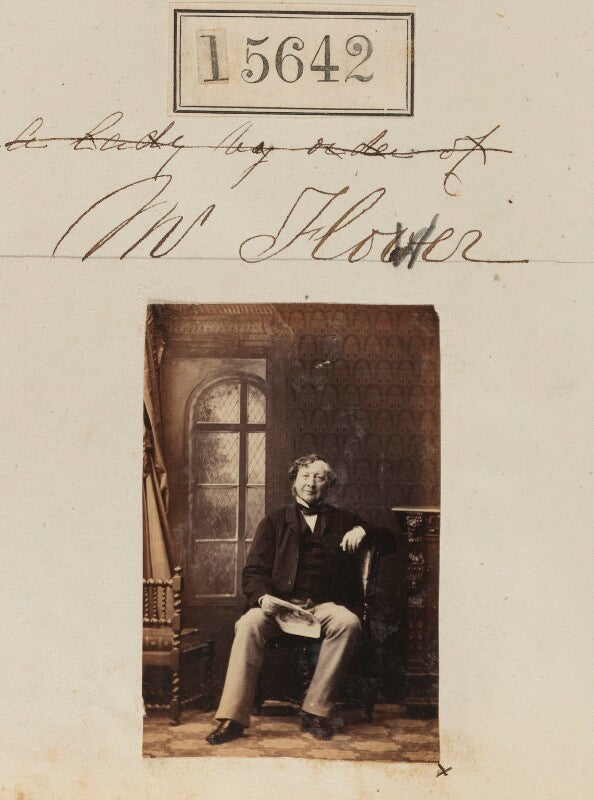 15642
a Lady by order of
Mr Flower
x